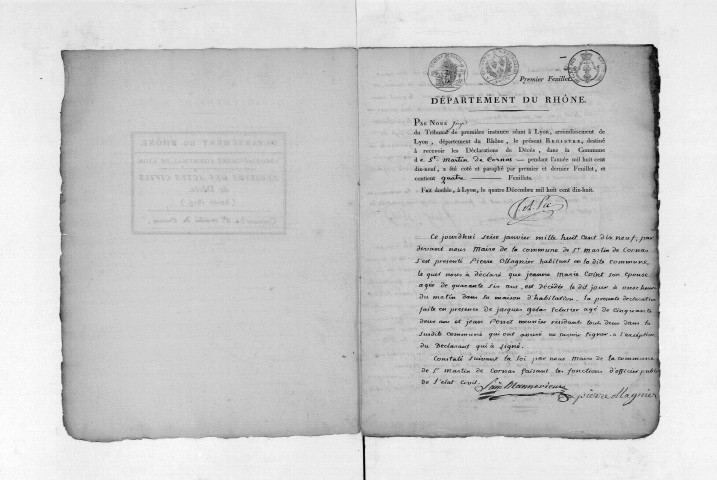 Premier Feuillet.
DÉPARTEMENT DU RHÔNE.
PAR NOUS Juge
du Tribunal de première instance séant à Lyon, arrondissement de
Lyon, département du Rhône, le présent REGISTRE, destiné
à recevoir les Déclarations de Décès, dans la Commune
de St. Martin de Cornas — pendant l'année mil huit cent
dix-neuf, a été coté et paraphé par premier et dernier Feuillet, et
contient quatre Feuillets.
Fait double, à Lyon, le quatre Décembre mil huit cent dix-huit.
Ce jourdhui seize janvier mille huit Cent dix neuf, par
devant nous Maire de la commune de St. Martin de Cornas
S'est présenté Pierre Ollagnier habitant en la dite commune,
le quel nous à déclaré que jeanne Marie Colet son épouse
agée de quarante six ans, est décédée le dit jour à onze heure
du matin dans sa maison d'habitation. la presente déclaration
faite en presence de jacques agé de Cinquante
deux ans et jean meunier résidant tout deux dans la
susdite commune qui ont assuré ne savoir signer à l'exception
du Déclarant qui à signé.
Constaté suivant la loi par nous Maire de la commune
de St. martin de Cornas faisant les fonctions d'officier public
de l'etat civil.
pierre ollagnier